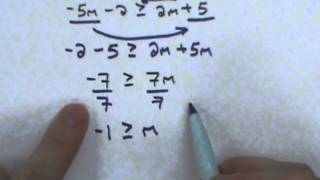 -5m - 2 ≥ 2m + 5
-2 - 5 ≥ 2m + 5m
-7 ≥ 7m
7 7
-1 ≥ m